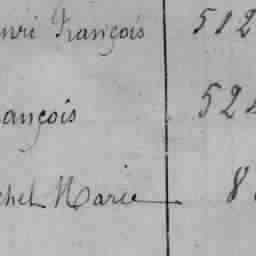 nri François 512
ançois 52
chel Marie 8